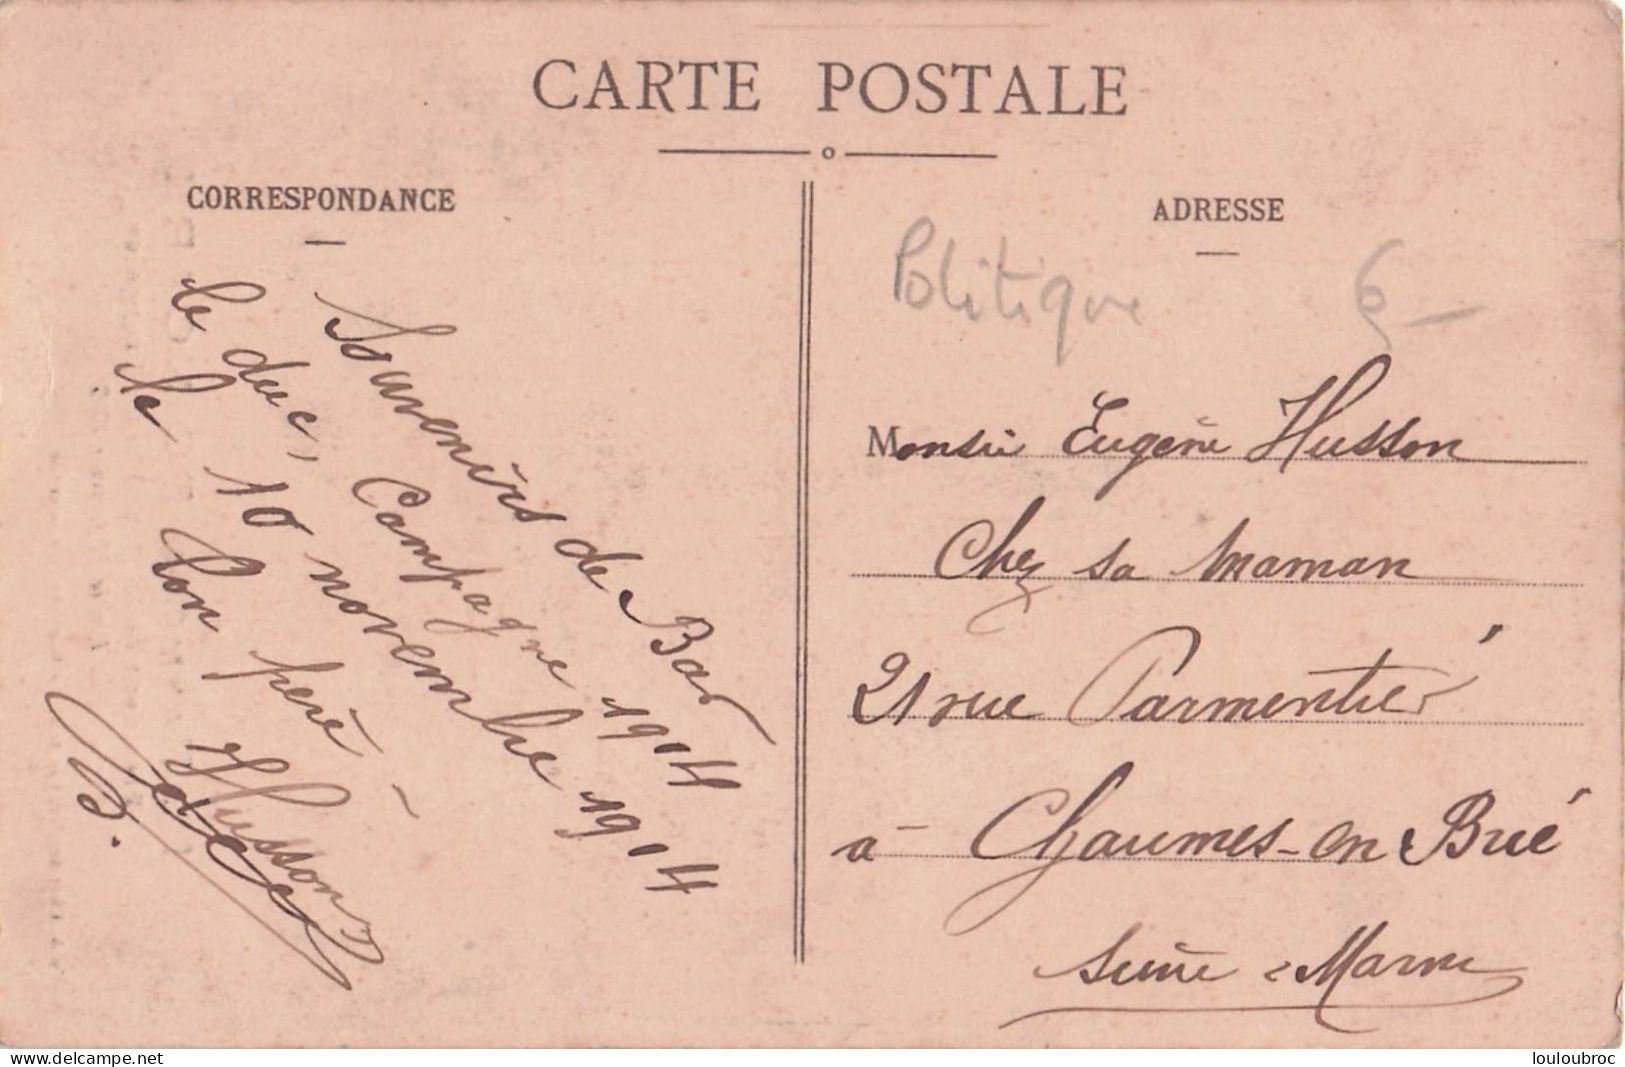 CARTE POSTALE
CORRESPONDANCE
Souvenirs de Bar
le duc, Campagne 1914
le 10 novembre 1914
Ton père
Husson
ADRESSE
Politique 6-
Monsie Eugène Husson
Chez sa maman
21 rue Parmentier
à Chaumes-en Brie
Seine & Marne
www.delcampe.net
louloubroc